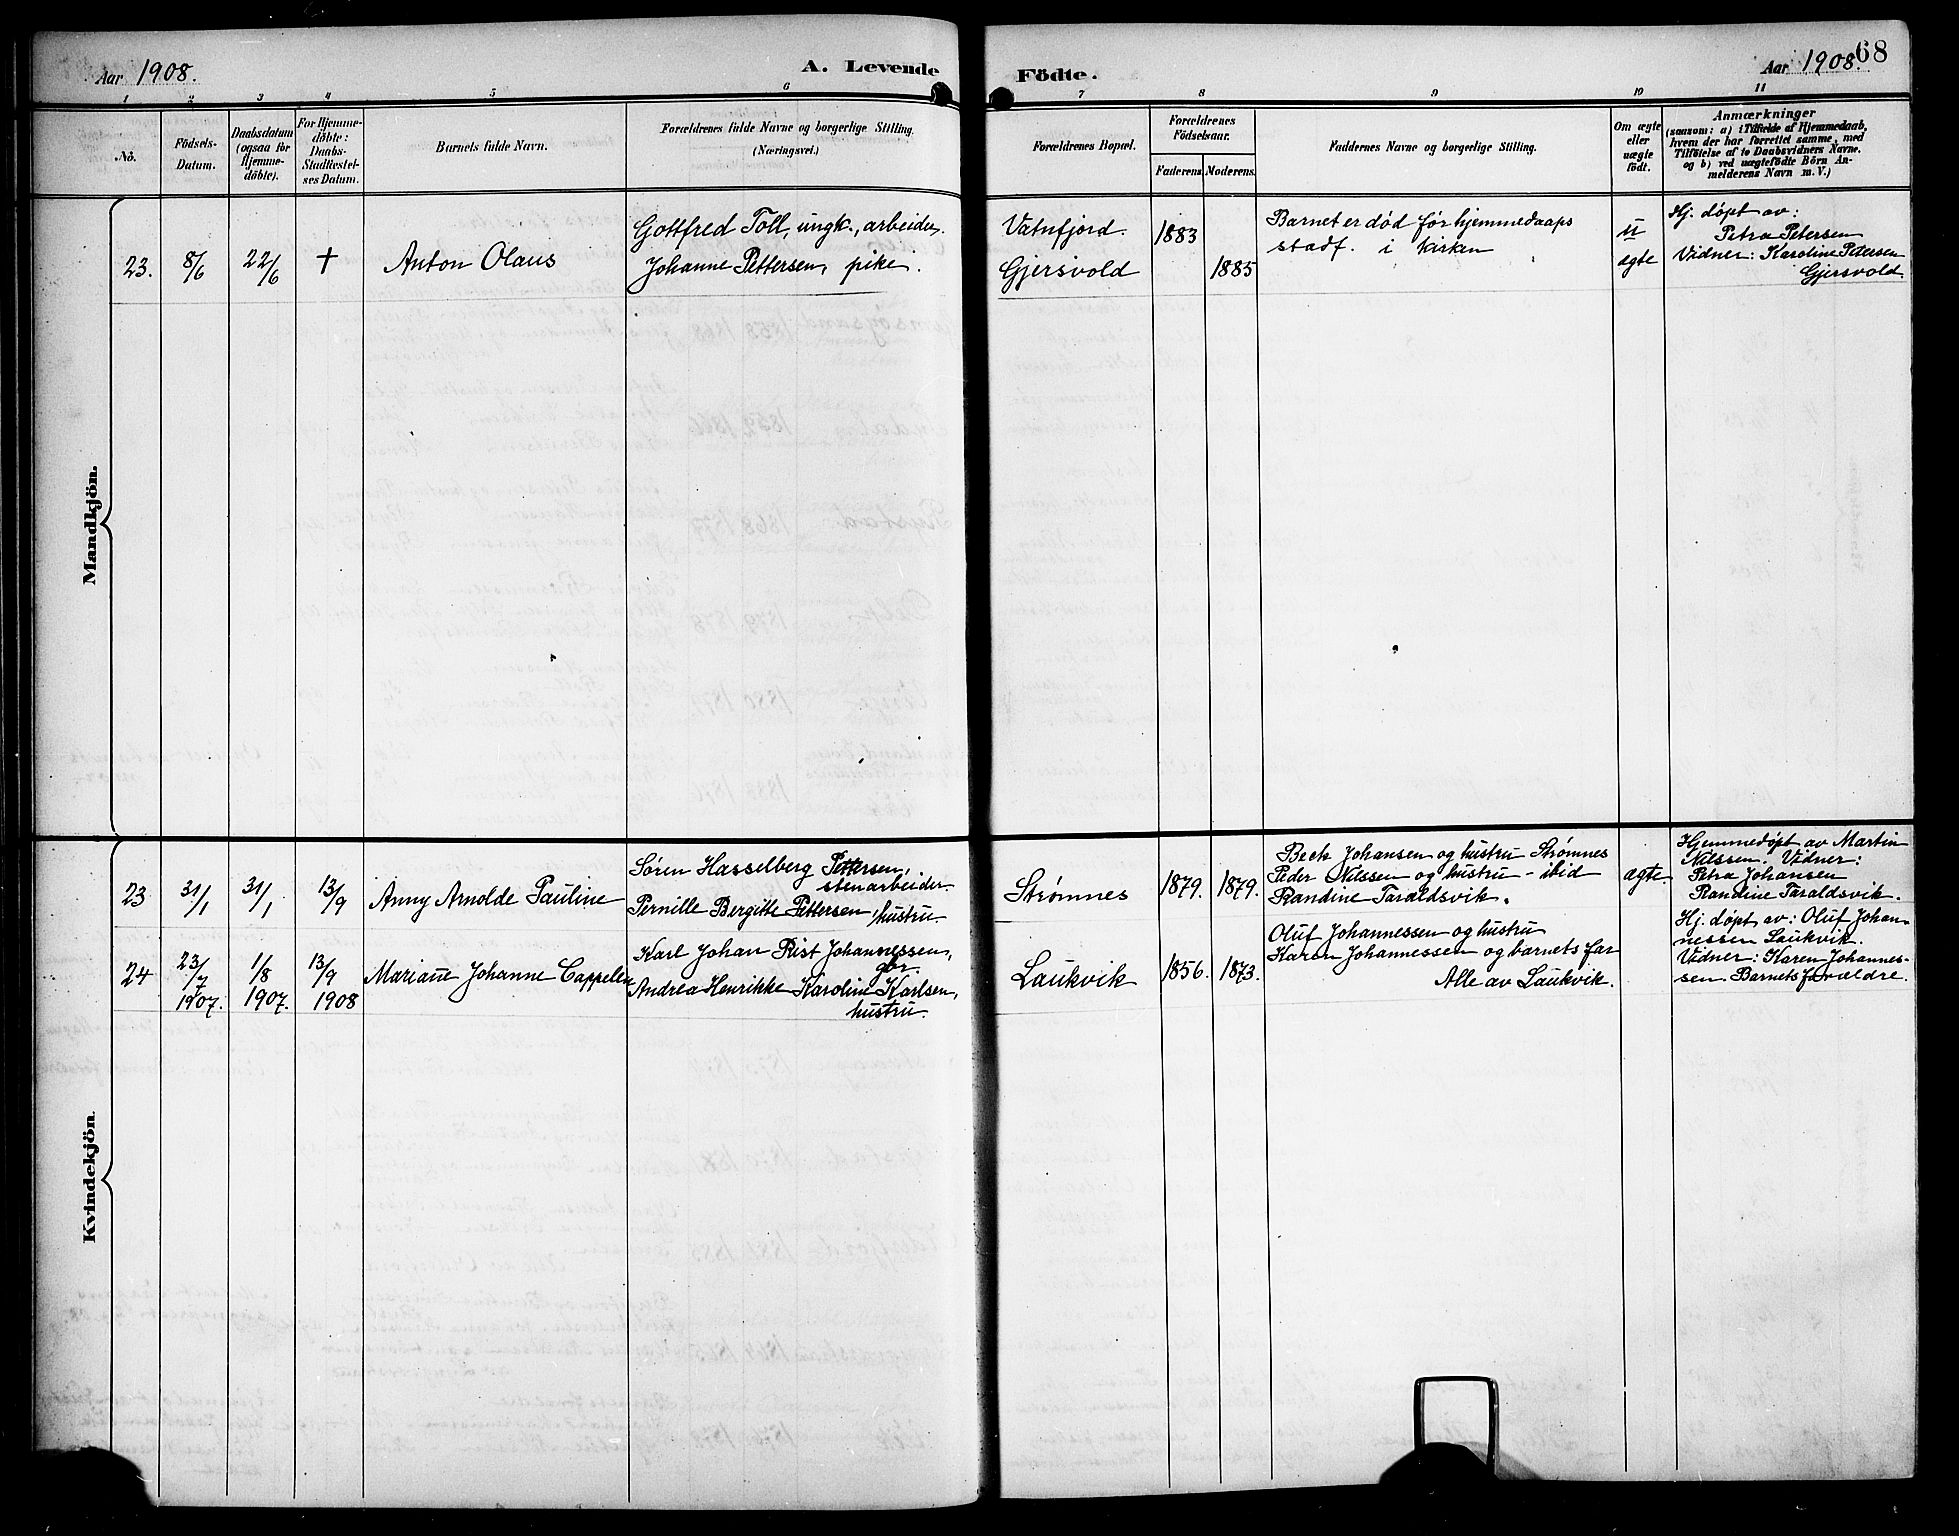 Aar 1908.
A. Levende
Födte.
Aar 1908.
68
1 2 3 4 5 6 7 8 9 10 11
No.
Födsels-
Datum.
Daabsdatum
(ogsaa for
Hjemme-
döbte).
For Hjemme-
döbte:
Daabs-
Stadfæstel-
ses Datum.
Barnets fulde Navn.
Forældrenes fulde Navne og borgerlige Stilling.
(Næringsvei.)
Forældrenes Bopæl.
Forældrenes
Födselsaar.
Faderens.
Moderens.
Faddernes Navne og borgerlige Stilling.
Om ægte
eller
uægte
födt.
Anmærkninger
(saasom: a) i Tilfælde af Hjemmedaab,
hvem der har forrettet samme, med
Tilföielse af to Daabsvidners Navne.
og b) ved uægtefödte Börn An-
melderens Navn m. V.)
Mandkjön.
23. 8/6 22/6 + Anton Olaus
Gottfred Toll, ungk., arbeider.
Johanne Pettersen, pike.
Vatnfjord.
Gjersvold
1883
1885
Barnet er død før hjemmedaaps
stadf. i kirken
u
ægte
Hj. døpt av:
Petra Petersen
Vidner: Karoline Petersen
Gjersvold.
Kvindekjön.
23. 31/1 31/1 13/9 Anny Arnolde Pauline
Søren Hasselberg Pettersen,
stenarbeider.
Pernille Bergitte Pettersen, hustru
Strømnes
1879. 1879.
Beck Johansen og hustru Strømnes
Peder Nilssen og hustru - ibid
Randine Taraldsvik.
ægte.
Hjemmedøpt av Martin
Nilssen. Vidner:
Petra Johansen
Randine Taraldsvik.
24 23/7 1907. 1/8 1907. 13/9 1908
Mariane Johanne Cappelen
Karl Johan Rist Johannessen,
Andrea Henrikke Karoline gbr. Karlsen,
hustru.
Laukvik
1856. 1873.
Oluf Johannessen og hustru
Karen Johannessen og barnets far
Alle av Laukvik.
Hj. døpt av: Oluf Johan-
nessen Laukvik.
Vidner: Karen Johannes-
sen. Barnets forældre.